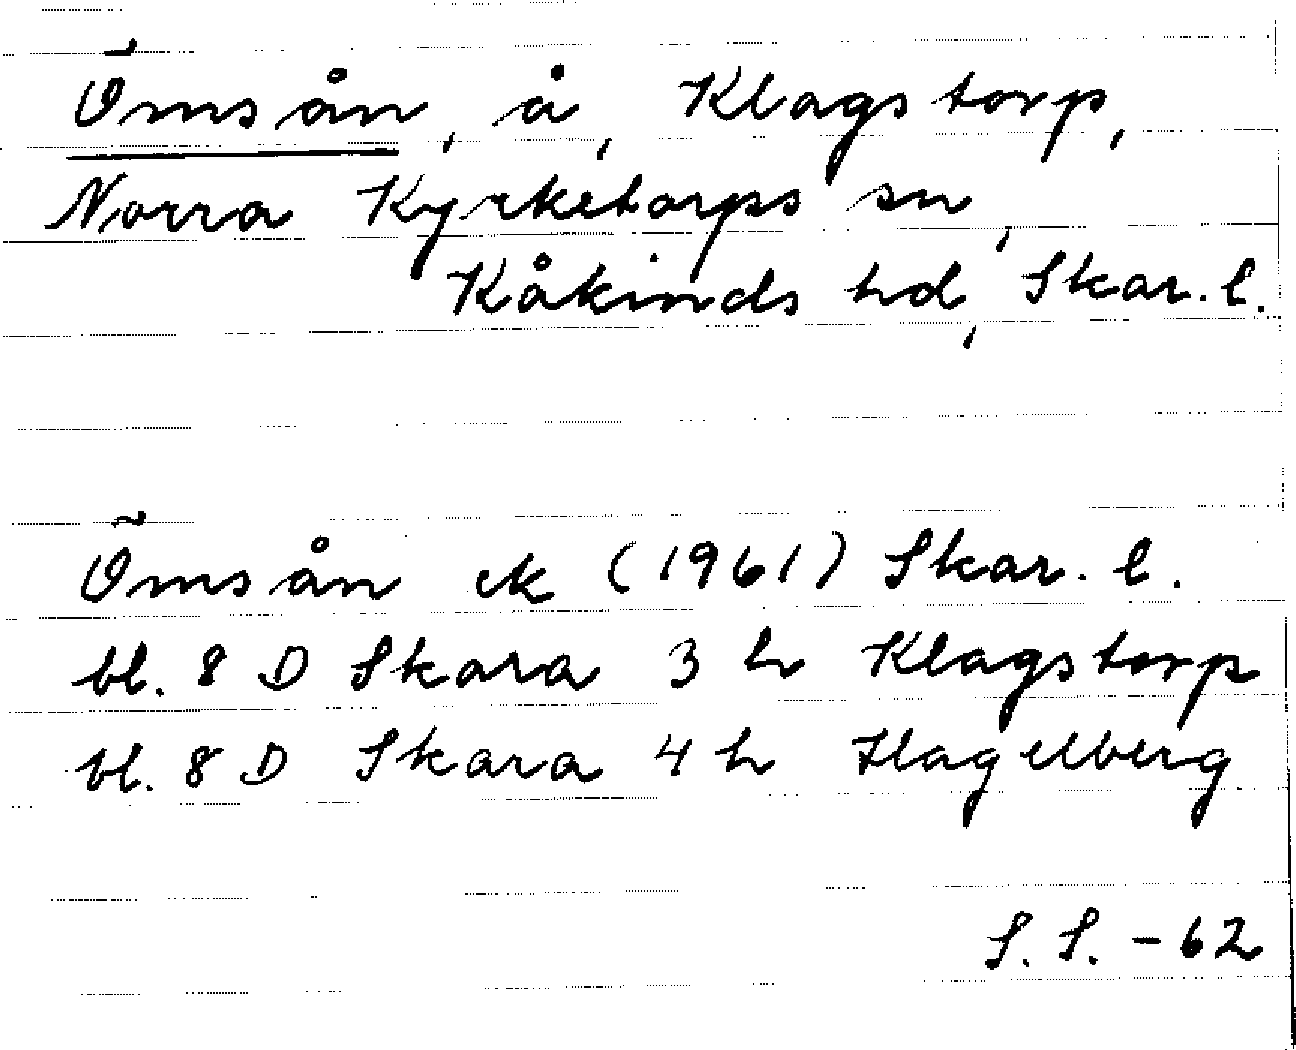 Ömsån, å, Klagstorp,
Norra Kyrketorps sn,
Kåkinds hd, Skar. l.
Ömsån ek (1961) Skar. l.
bl. 8 D Skara 3 h Klagstorp
bl. 8 D Skara 4 h Hagelberg
S. S. - 62